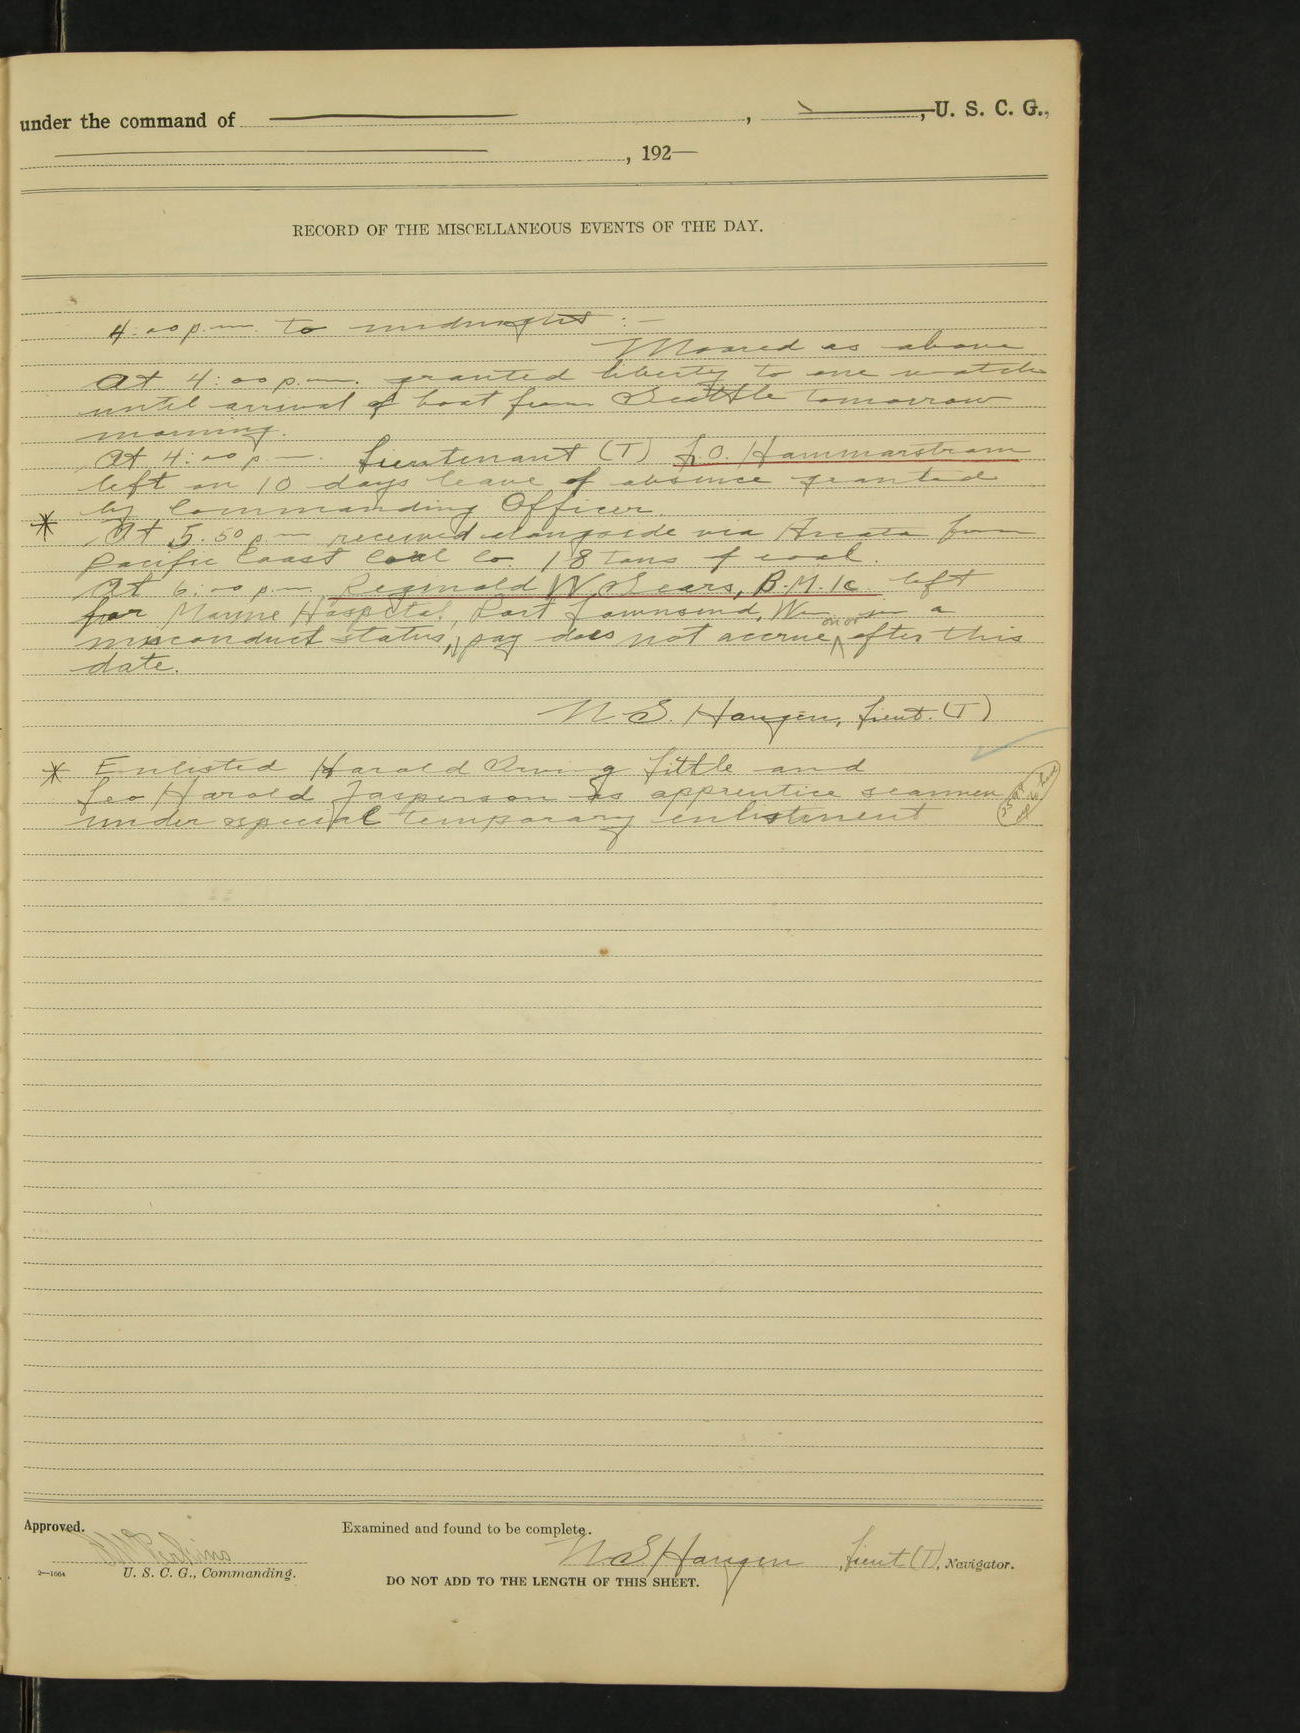 under the command of , , U. S. C. G.,
, 192—
RECORD OF THE MISCELLANEOUS EVENTS OF THE DAY.
4:00 p.m. to midnight :—
Moored as above
At 4:00 p.m. granted liberty to one watch
until arrival of boat from Seattle tomorrow
morning.
At 4:00 p.m. Lieutenant (T) L.O. Hammarstrom
left on 10 days leave of absence granted
by Commanding Officer.
* At 5.50 p.m. received alongside via Arcata from
Pacific Coast Coal Co. 18 tons of coal.
At 6:00 p.m. Reginald W. Sears, B.M.1c left
for Marine Hospital, Port Townsend, Wn. in a
misconduct status, pay does not accrue on or after this
date.
N. S. Haugen, Lieut. (T)
* Enlisted Harold Irving Little and
Leo Harold Jasperson as apprentice seamen
under special temporary enlistment
Approved.
Examined and found to be complete.
Perkins
N. S. Haugen, Lieut (T), Navigator.
2—1664
U. S. C. G., Commanding.
DO NOT ADD TO THE LENGTH OF THIS SHEET.